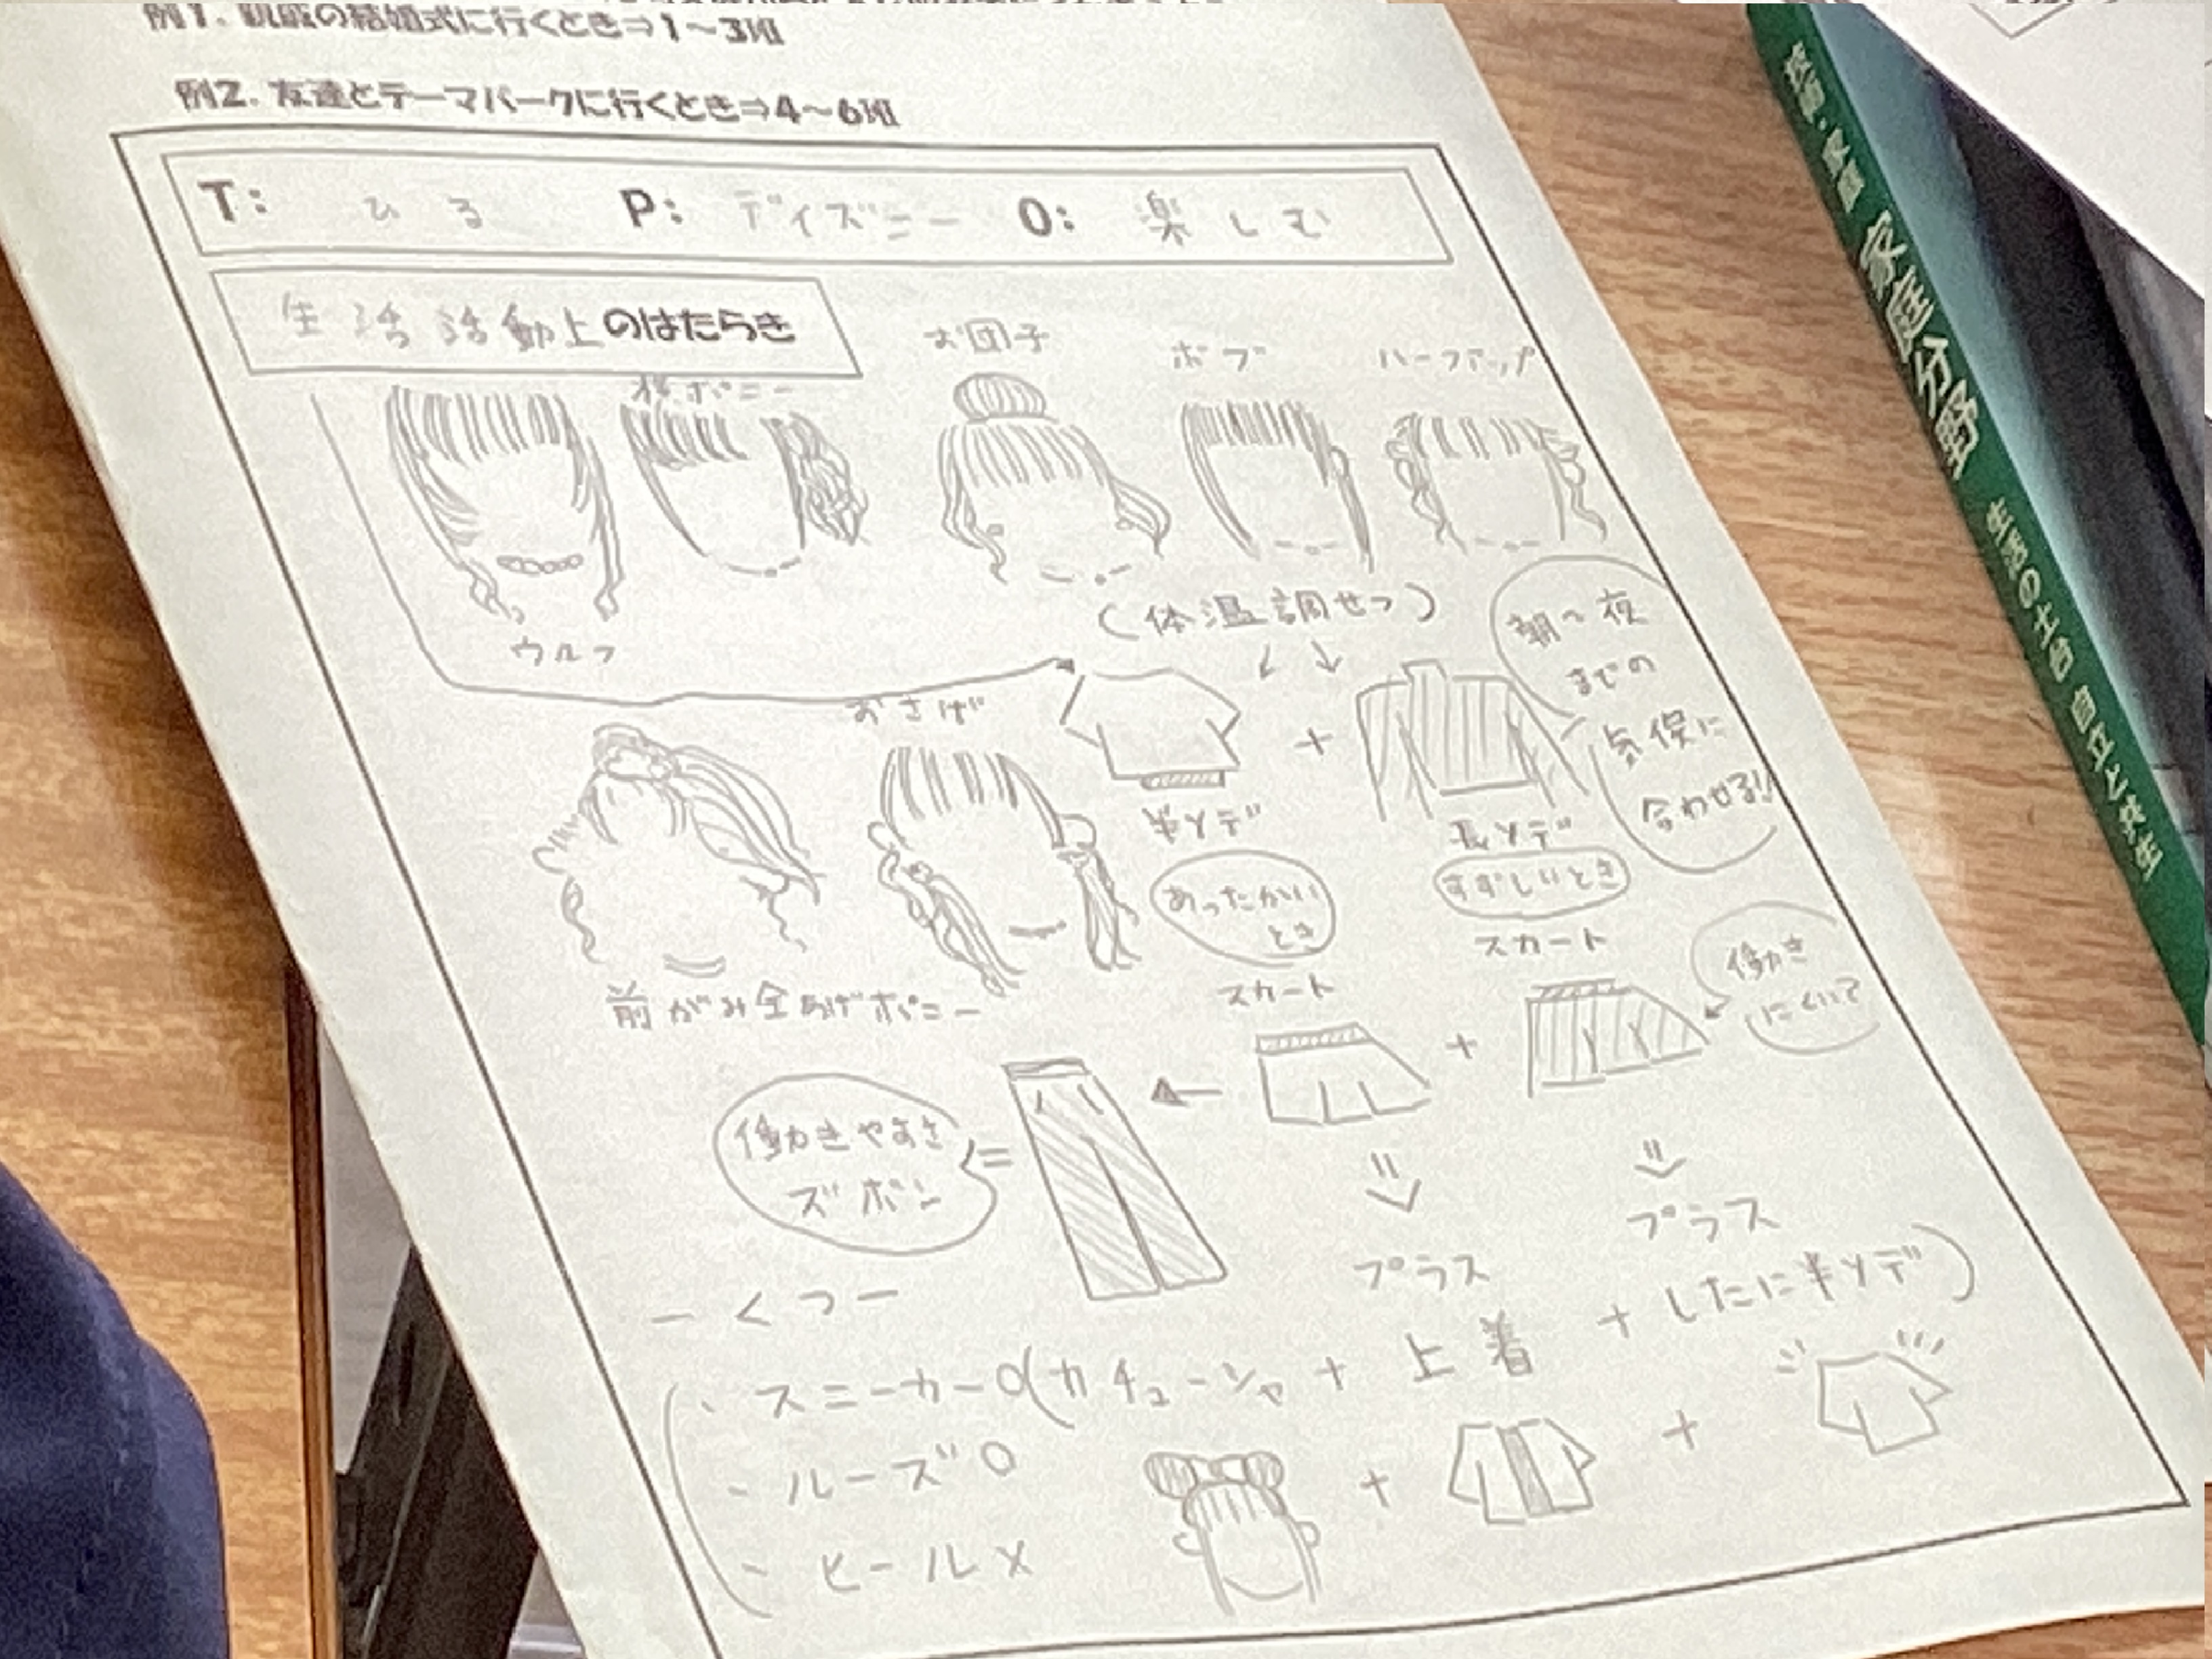 例1. 親戚の結婚式に行くとき⇒1～3班
例2. 友達とテーマパークに行くとき⇒4～6班
T: ひる P: ディズニー O: 楽しむ
生活活動上のはたらき
横ポニー
お団子
ボブ
ハーフアップ
ウルフ
(体温調せつ)
朝～夜
までの
気候に
合わせる!!
おさげ
+
半ソデ
長ソデ
あったかい
とき
すずしいとき
前がみ全あげポニー
スカート
スカート
働き
にくい?
+
働きやすさ
ズボン
=
プラス
プラス
ーくつー
・スニーカーO
・ルーズO
・ヒールX
(カチューシャ + 上着 + したに半ソデ)
+
+
家庭分野
生活の土台 自立と共生